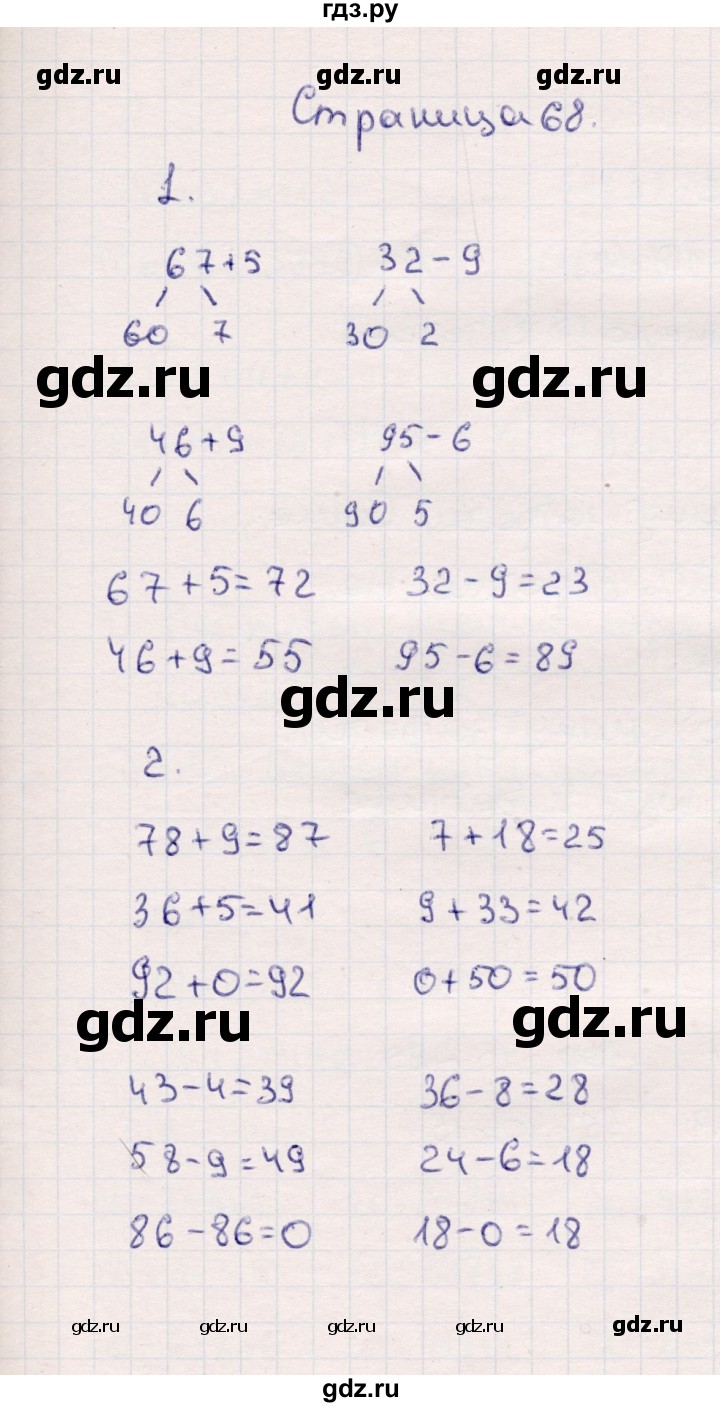 гдз.ру
gdz.ru gdz.ru gdz.ru
Страница 68.
1.
67+5 32-9
60 7 30 2
gdz.ru gdz.ru
46+9 95-6
40 6 90 5
67+5=72 32-9=23
46+9=55 95-6=89
gdz.ru
2.
78+9=87 7+18=25
36+5=41 9+33=42
92+0=92 0+50=50
gdz.ru gdz.ru
43-4=39 36-8=28
58-9=49 24-6=18
86-86=0 18-0=18
gdz.ru gdz.ru gdz.ru gdz.ru gdz.ru
gdz.ru